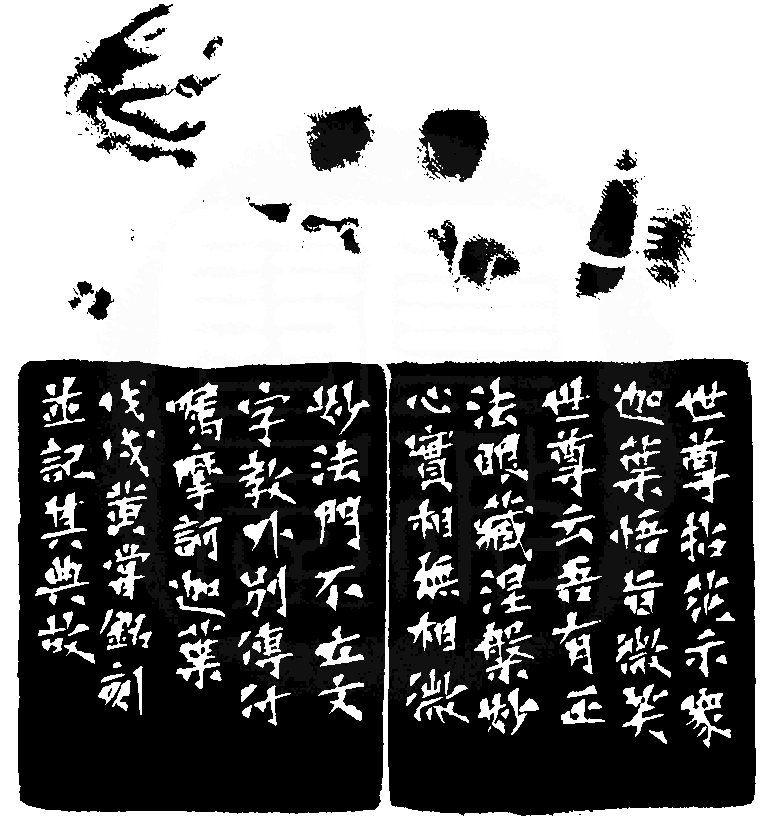 世尊拈花示眾
迦葉悟旨微笑
世尊云吾有正
法眼藏涅槃妙
心實相無相微
妙法門不立文
字教外別傳付
囑摩訶迦葉
戊戌黃嘗銘刻
並記其典故